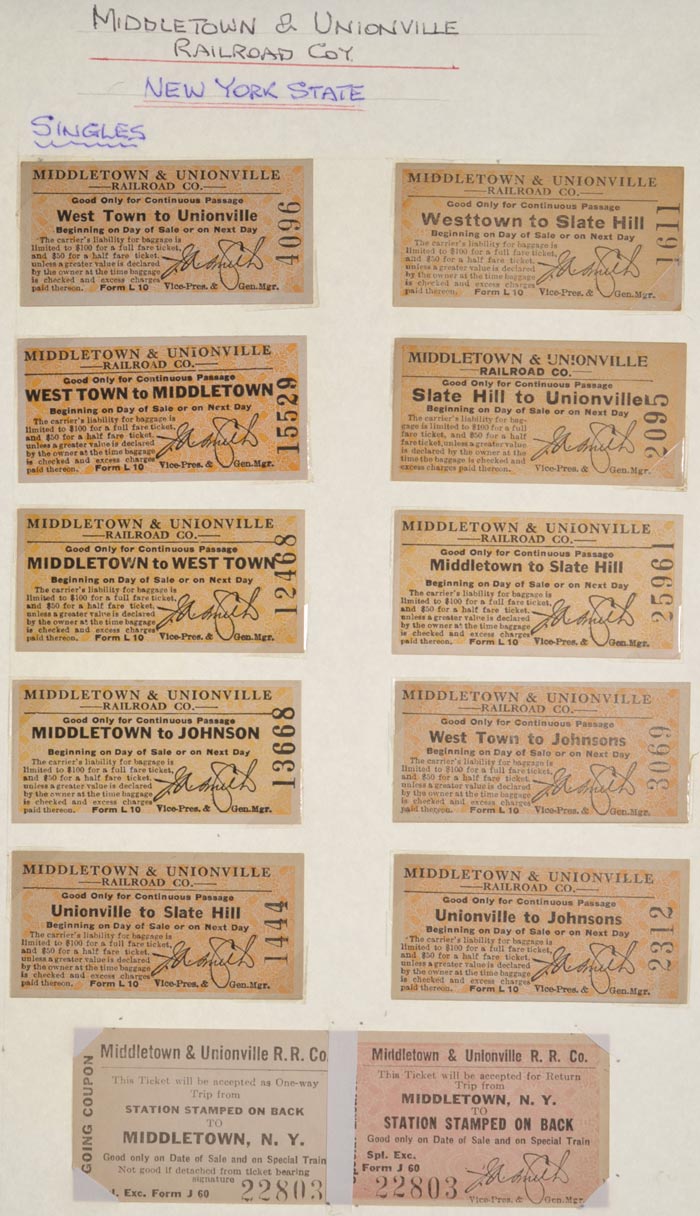 MIDDLETOWN & UNIONVILLE
RAILROAD COY.
NEW YORK STATE
SINGLES
MIDDLETOWN & UNIONVILLE
RAILROAD CO.
Good Only for Continuous Passage
West Town to Unionville
Beginning on Day of Sale or on Next Day
The carrier's liability for baggage is
limited to $100 for a full fare ticket,
and $50 for a half fare ticket,
unless a greater value is declared
by the owner at the time baggage
is checked and excess charges
paid thereon. Form L 10
Vice-Pres. & Gen.Mgr.
4096
MIDDLETOWN & UNIONVILLE
RAILROAD CO.
Good Only for Continuous Passage
Westtown to Slate Hill
Beginning on Day of Sale or on Next Day
The carrier's liability for baggage is
limited to $100 for a full fare ticket,
and $50 for a half fare ticket,
unless a greater value is declared
by the owner at the time baggage
is checked and excess charges
paid thereon. Form L 10
Vice-Pres. & Gen.Mgr.
1611
MIDDLETOWN & UNIONVILLE
RAILROAD CO.
Good Only for Continuous Passage
WEST TOWN to MIDDLETOWN
Beginning on Day of Sale or on Next Day
The carrier's liability for baggage is
limited to $100 for a full fare ticket,
and $50 for a half fare ticket,
unless a greater value is declared
by the owner at the time baggage
is checked and excess charges
paid thereon. Form L 10
Vice-Pres. & Gen.Mgr.
15529
MIDDLETOWN & UNIONVILLE
RAILROAD CO.
Good Only for Continuous Passage
Slate Hill to Unionville
Beginning on Day of Sale or on Next Day
The carrier's liability for bag-
gage is limited to $100 for a full
fare ticket, and $50 for a half
fare ticket, unless a greater value
is declared by the owner at the
time the baggage is checked and
excess charges paid thereon.
Vice-Pres. & Gen.Mgr.
2095
MIDDLETOWN & UNIONVILLE
RAILROAD CO.
Good Only for Continuous Passage
MIDDLETOWN to WEST TOWN
Beginning on Day of Sale or on Next Day
The carrier's liability for baggage is
limited to $100 for a full fare ticket,
and $50 for a half fare ticket,
unless a greater value is declared
by the owner at the time baggage
is checked and excess charges
paid thereon. Form L 10
Vice-Pres. & Gen.Mgr.
12468
MIDDLETOWN & UNIONVILLE
RAILROAD CO.
Good Only for Continuous Passage
Middletown to Slate Hill
Beginning on Day of Sale or on Next Day
The carrier's liability for baggage is
limited to $100 for a full fare ticket,
and $50 for a half fare ticket,
unless a greater value is declared
by the owner at the time baggage
is checked and excess charges
paid thereon. Form L 10
Vice-Pres. & Gen.Mgr.
25961
MIDDLETOWN & UNIONVILLE
RAILROAD CO.
Good Only for Continuous Passage
MIDDLETOWN to JOHNSON
Beginning on Day of Sale or on Next Day
The carrier's liability for baggage is
limited to $100 for a full fare ticket,
and $50 for a half fare ticket,
unless a greater value is declared
by the owner at the time baggage
is checked and excess charges
paid thereon. Form L 10
Vice-Pres. & Gen.Mgr.
13668
MIDDLETOWN & UNIONVILLE
RAILROAD CO.
Good Only for Continuous Passage
West Town to Johnsons
Beginning on Day of Sale or on Next Day
The carrier's liability for baggage is
limited to $100 for a full fare ticket,
and $50 for a half fare ticket,
unless a greater value is declared
by the owner at the time baggage
is checked and excess charges
paid thereon. Form L 10
Vice-Pres. & Gen.Mgr.
3069
MIDDLETOWN & UNIONVILLE
RAILROAD CO.
Good Only for Continuous Passage
Unionville to Slate Hill
Beginning on Day of Sale or on Next Day
The carrier's liability for baggage is
limited to $100 for a full fare ticket,
and $50 for a half fare ticket,
unless a greater value is declared
by the owner at the time baggage
is checked and excess charges
paid thereon. Form L 10
Vice-Pres. & Gen.Mgr.
1444
MIDDLETOWN & UNIONVILLE
RAILROAD CO.
Good Only for Continuous Passage
Unionville to Johnsons
Beginning on Day of Sale or on Next Day
The carrier's liability for baggage is
limited to $100 for a full fare ticket,
and $50 for a half fare ticket,
unless a greater value is declared
by the owner at the time baggage
is checked and excess charges
paid thereon. Form L 10
Vice-Pres. & Gen.Mgr.
2312
GOING COUPON
Middletown & Unionville R.R. Co.
This Ticket will be accepted as One-way
Trip from
STATION STAMPED ON BACK
TO
MIDDLETOWN, N. Y.
Good only on Date of Sale and on Special Train
Not good if detached from ticket bearing
signature
l. Exc. Form J 60
22803
Middletown & Unionville R. R. Co.
This Ticket will be accepted for Return
Trip from
MIDDLETOWN, N. Y.
TO
STATION STAMPED ON BACK
Good only on Date of Sale and on Special Train
Spl. Exc.
Form J 60
22803
Vice-Pres. & Gen. Mgr.